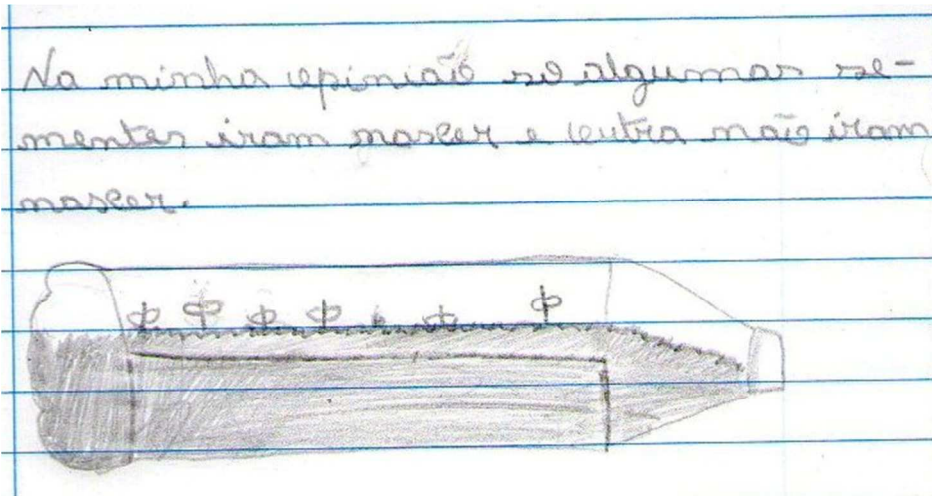 Na minha opinião so algumas se-
mentes iram nascer e outra não iram
nascer.